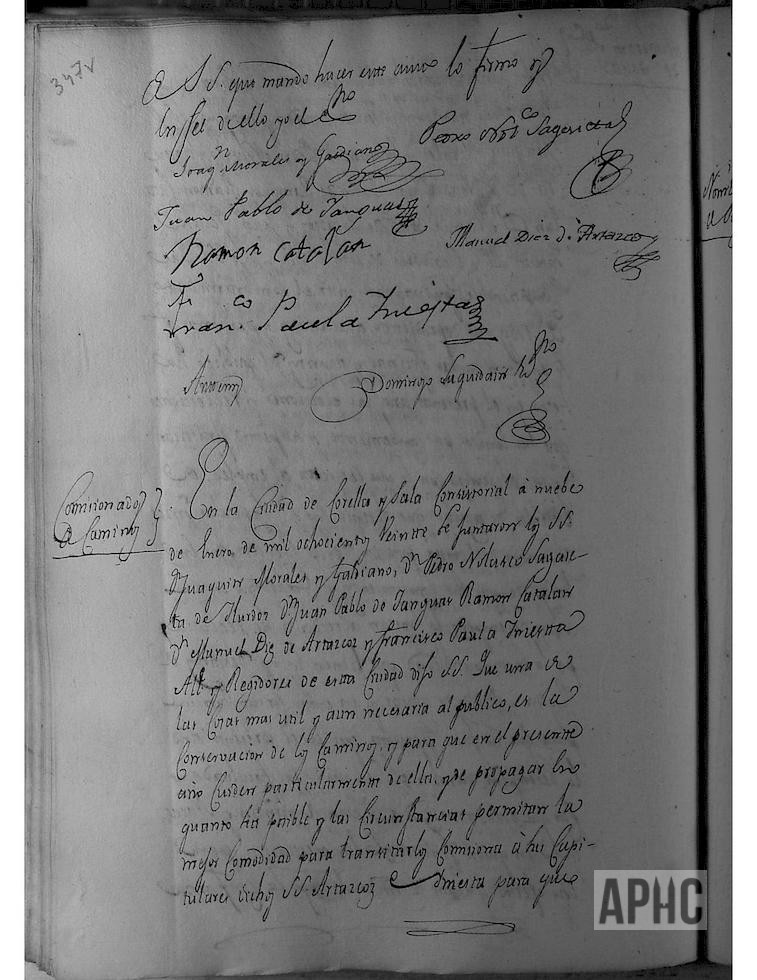 347v
SS. que mando hacer este auto lo firmo y
en fee de ello yo el Sno
Joaqn Morales y Galdiano
Pedro Nolco Sagaseta
Juan Pablo de Yanguas
Ramon Catalan
Manuel Diez de Artazcoz
Franco Paula Iniesta
Ante mi
Domingo Luquidain Sno
Comisionados
a Caminos
En la Ciudad de Corella y Sala Consistorial à nuebe
de Enero de mil ochocientos Veintte se juntaron los SS.
Dn Juaquin Morales y Galdiano, Dn Pedro Nolasco Sagase-
ta de Ilurdoz Dn Juan Pablo de Yanguas Ramon Catalan
Dn Manuel Diez de Artazcoz y Francisco Paula Iniestta
Alle y Regidores de esta Ciudad dijo SS. Que una de
las Cosas mas util y aun necesaria al publico, es la
Conservacion de los Caminos, y para que en el presentte
año Cuiden particularmente de ella, y de propagar en
quanto sea posible y las Circunstancias permitan la
mejor Comodidad para transitarlos Comisiona à sus Capi-
tulares dichos SS. Artazcoz e Iniesta para que
APHC